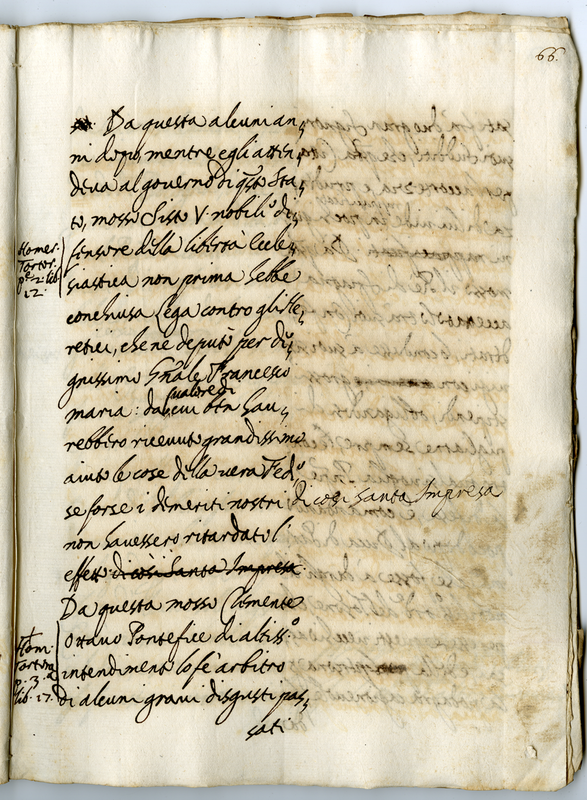 66.
Da questa alcuni an,
ni dopo, mentre egli atten,
deva al governo di q.sto Sta,
to, mosso Sisto V. nobiliss.o di,
fensore della libertà Eccle,
siastica non prima hebbe
conchiusa Lega contro gli He,
retici, che ne deputò per di,
gnissimo G͞nale Francesco
maria: dal valore di cui ben hav,
rebbero ricevuto grandissimo
aiuto le cose della vera Fede,
se forse i demeriti nostri di così santa Impresa
non havessero ritardato l'
effetto di così Santa Impresa.
Da questa mosso Clemente
Ottavo Pontefice di altiss.o
intendimento lo fè arbitro
di alcuni gravi disgusti pas,
sati
Homer.
Tortor.
p.e 2. lib.
22.
Hom.
Tortora
p. 3.a
lib. 27.